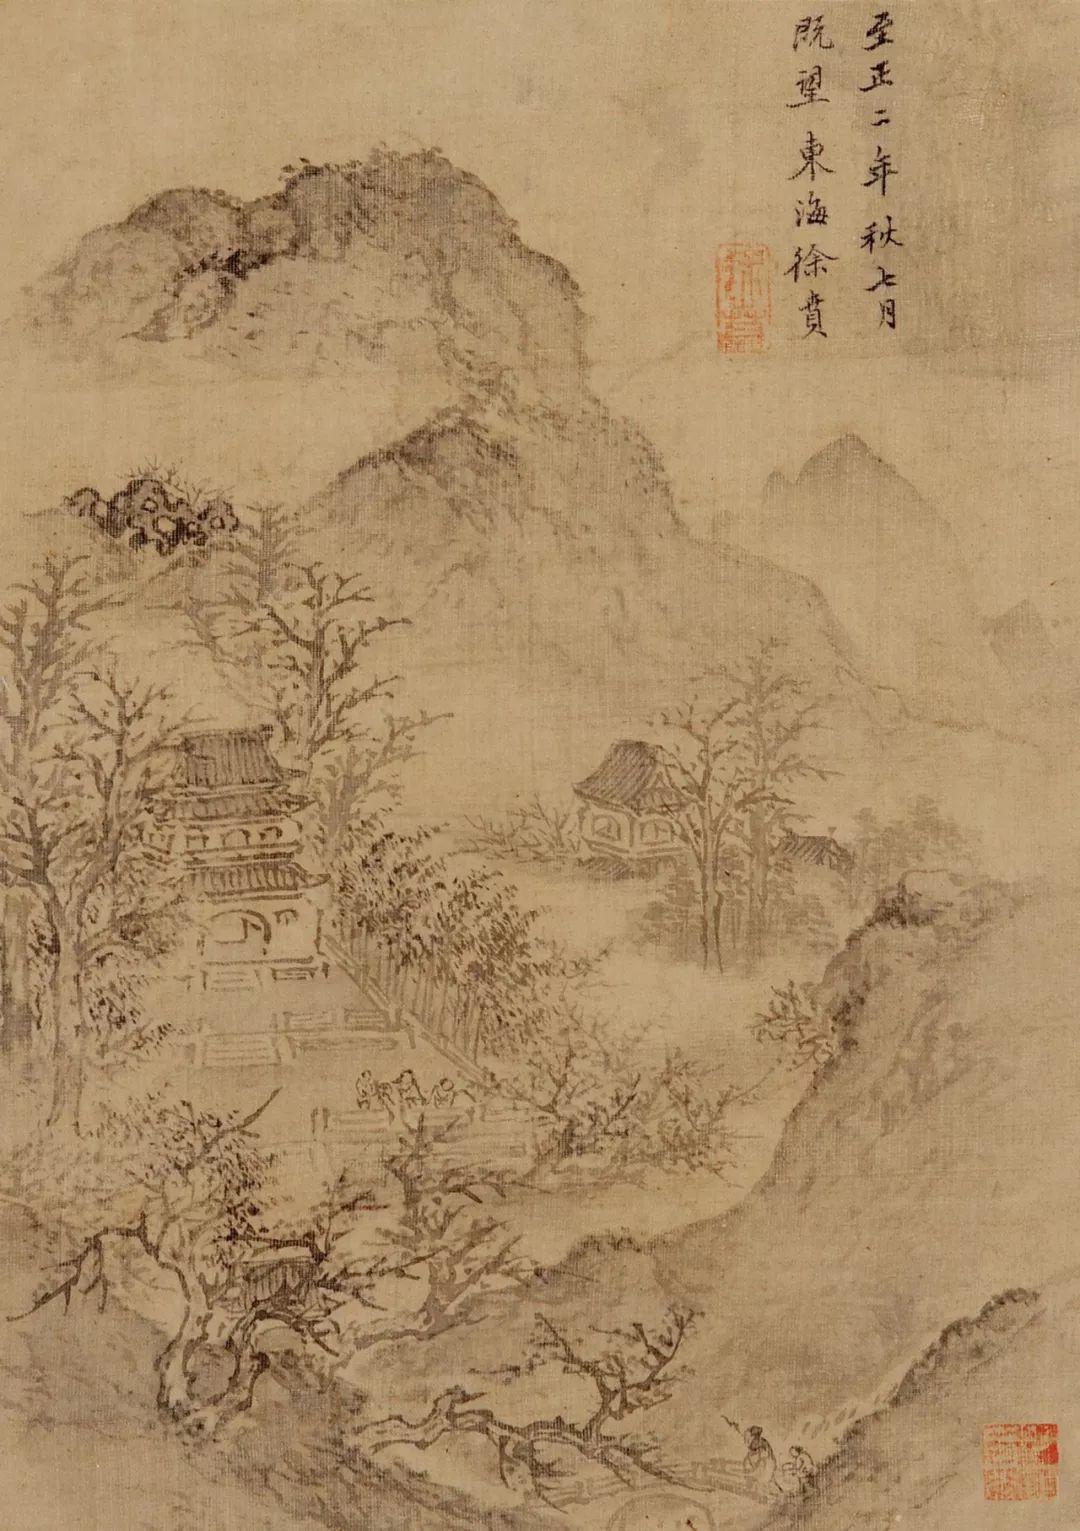 至正二年秋七月
既望東海徐賁